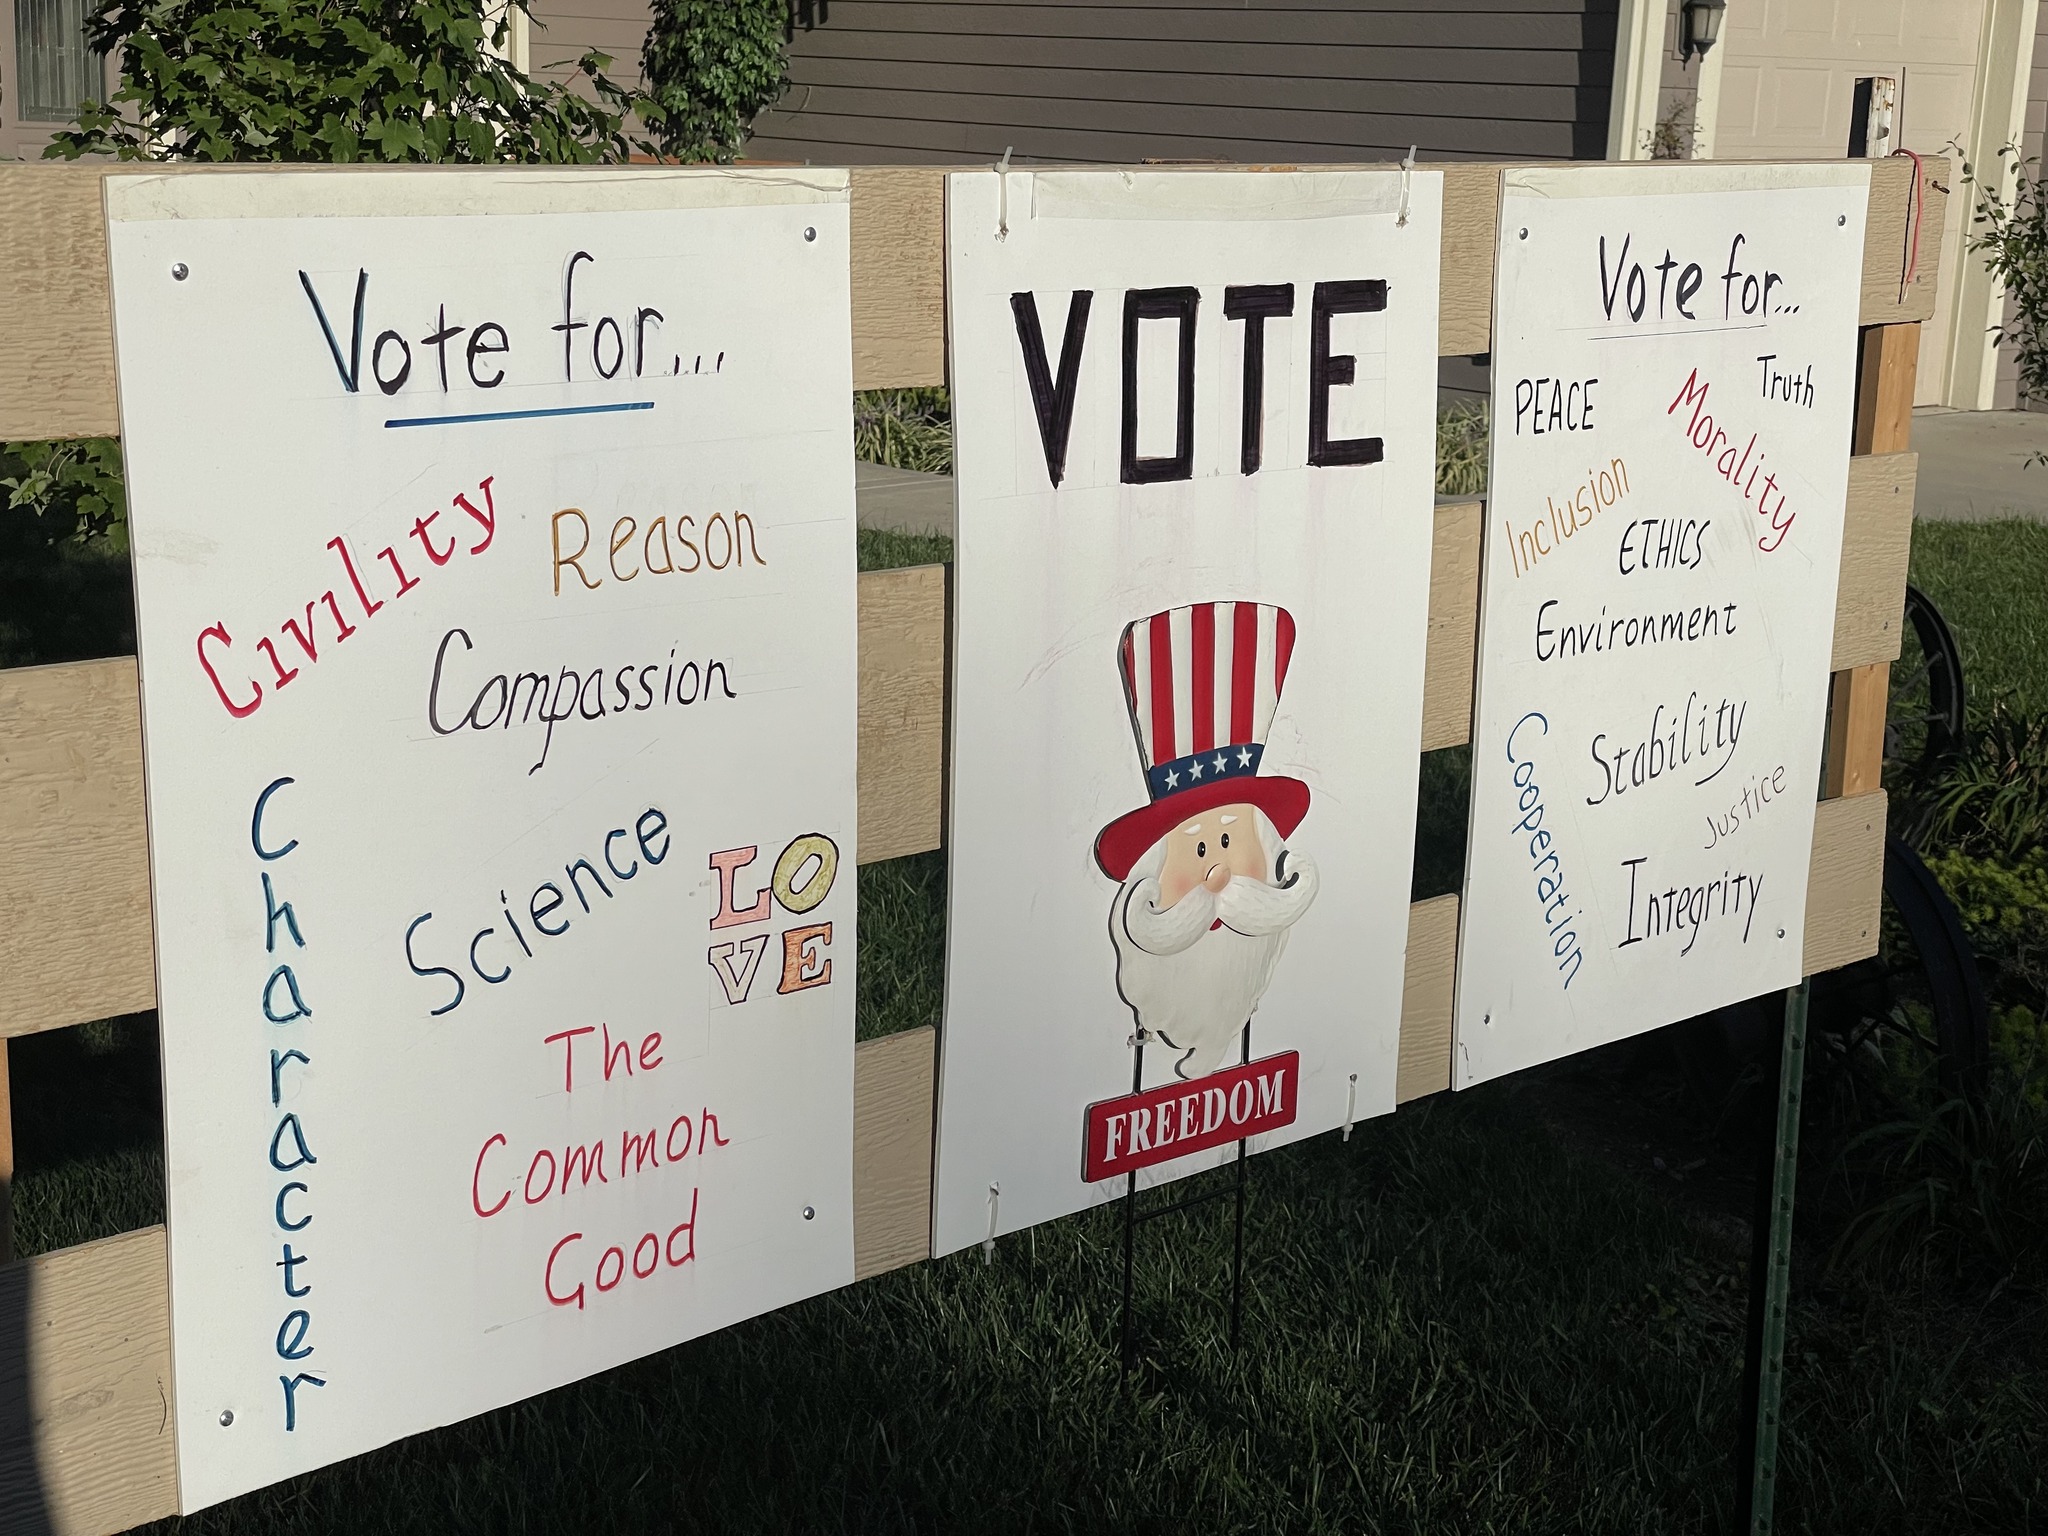 Vote for...
Civility
Reason
Compassion
Character
Science
LO
VE
The
Common
Good
VOTE
FREEDOM
Vote for...
PEACE
Morality
Truth
Inclusion
ETHICS
Environment
Cooperation
Stability
Justice
Integrity